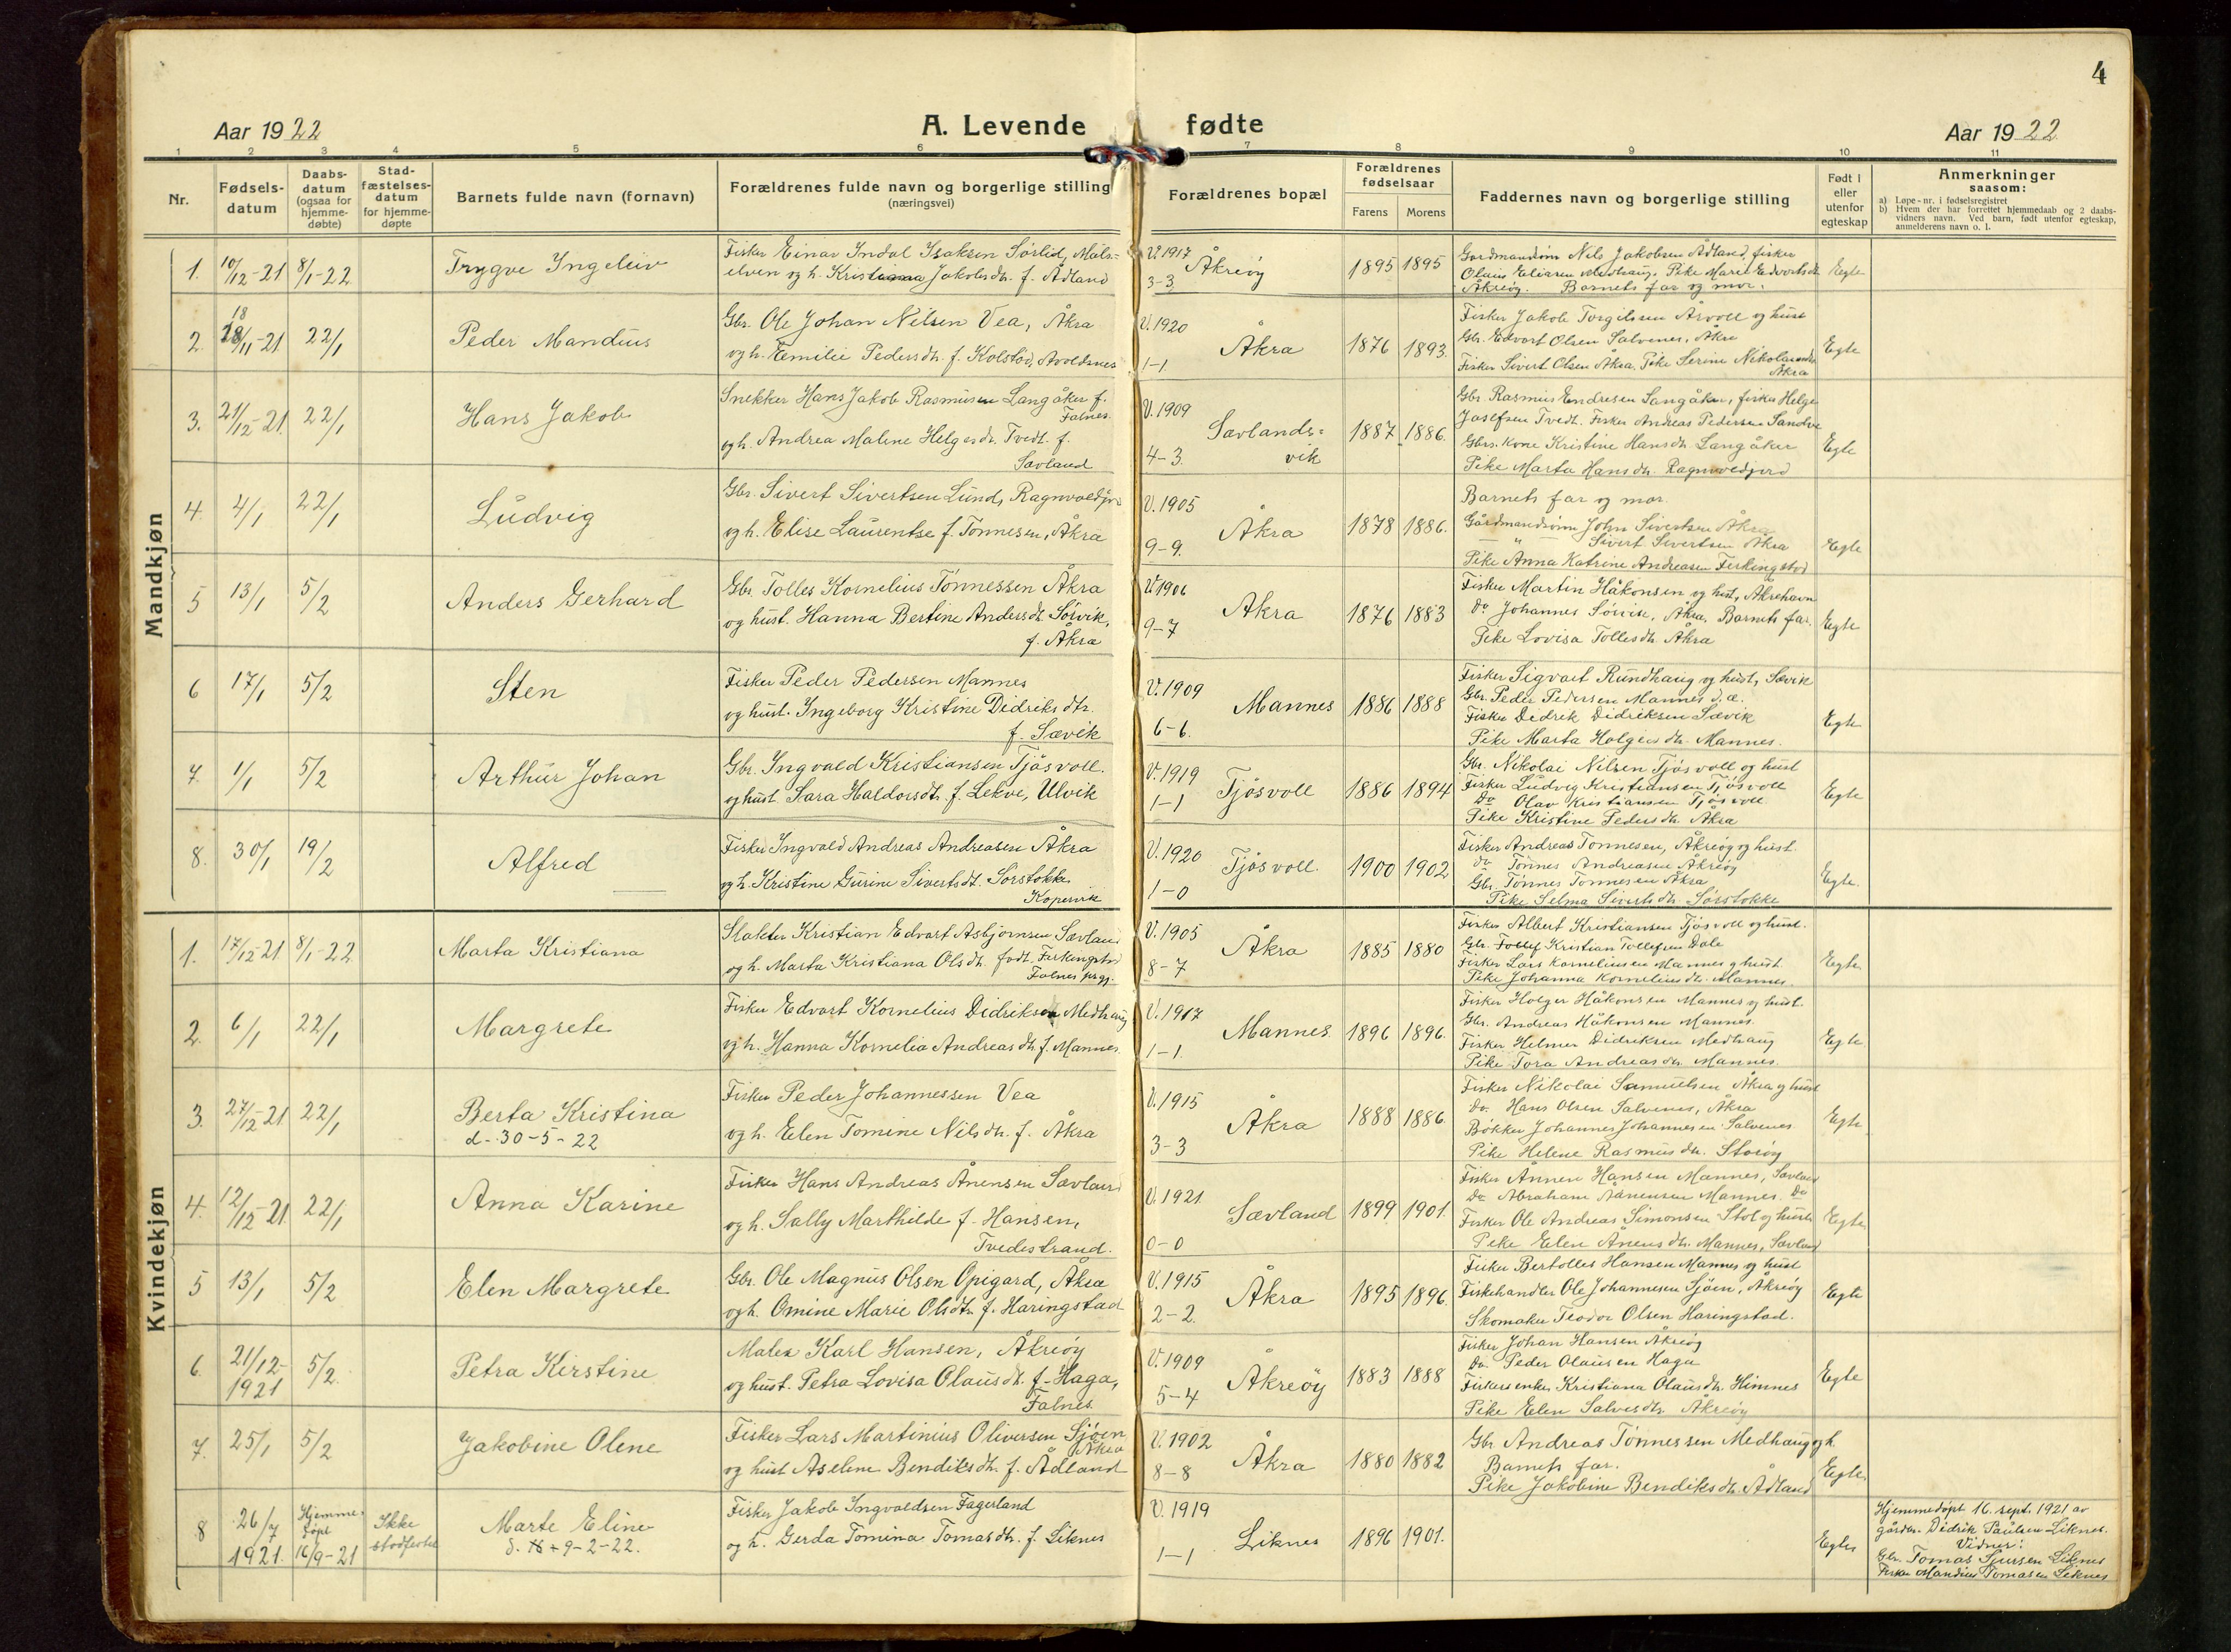 4
Aar 1922
A. Levende fødte
Aar 1922
1 2 3 4 5 6 7 8 9 10 11
Nr.
Fødsels-
datum
Daabs-
datum
(ogsaa for
hjemme-
døbte)
Stad-
fæstelses-
datum
for hjemme-
døpte
Barnets fulde navn (fornavn)
Forældrenes fulde navn og borgerlige stilling
(næringsvei)
Forældrenes bopæl
Forældrenes
fødselsaar
Farens Morens
Faddernes navn og borgerlige stilling
Født i
eller
utenfor
egteskap
Anmerkninger
saasom:
a) Løpe-nr. i fødselsregistret
b) Hvem der har forrettet hjemmedaab og 2 daabs-
vidners navn. Ved barn, født utenfor egteskap,
anmelderens navn o. l.
Mandkjøn
1. 10/12-21 8/1-22 Trygve Ingeleiv
Fisker Einar Indal Isaksen Sørlid, Mals=
elven og h. Kristianna Jakobsdtr. f. Ådland
V. 1917
3-3 Åkreøy 1895 1895
Gardmandsøn Nils Jakobsen Ådland, fisker
Olaus Eliasen Medhaug. Pike Marie Edvartsdtr
Åkreøy. Barnets far og mor.
Egte
2. 18/11-21 22/1 Peder Mandius
Gbr. Ole Johan Nilsen Vea, Åkra
og h. Emilie Pedersdtr. f. Kolstø, Avoldsnes
V. 1920
1-1 Åkra 1876 1893.
Fisker Jakob Torgilsen Årvoll og hust
Gbr. Edvart Olsen Salvenes, Åkra
Fisker Sivert Olsen Åkra, Pike Serine Nikolaisdtr
Åkra
Egte
3. 21/12-21 22/1 Hans Jakob
Snekker Hans Jakob Rasmusen Langåker f.
Falnes
og h. Andrea Maline Helgesdtr. Tvedt f.
Sævland
V. 1909
4-3. Sævlands=
vik 1887 1886.
Gbr. Rasmus Endresen Langåker, fisker Helge
Josefsen Tvedt. Fisker Andreas Pedersen Sandve
Gbrs. kone Kristine Hansdtr. Langåker
Pike Marta Hansdtr. Ragnvoldjord
Egte
4. 4/1 22/1 Ludvig
Gbr. Sivert Sivertsen Lund, Ragnvoldjord
og h. Elise Laurentse f. Tønnesen, Åkra
V. 1905
9-9. Åkra 1878 1886.
Barnets far og mor.
Gårdmandsønn John Sivertsen Åkra
— " — Sivert Sivertsen Åkra
Pike Anna Katrine Andreasen Ferkingstad
Egte
5 13/1 5/2 Anders Gerhard
Gbr. Tolles Kornelius Tønnessen Åkra
og hust. Hanna Bertine Andersdtr. Sørvik,
f. Åkra
V. 1906
9-7 Åkra 1876 1883
Fisker Martin Håkonsen og hust, Åkrehavn
do. Johannes Sørvise, Åkra, Barnets far.
Pike Lovisa Tollesdtr. Åkra
Egte
6 17/1 5/2 Sten
Fisker Peder Pedersen Mannes
og hust. Ingeborg Kristine Didriksdtr.
f. Sævik
V. 1909
6-6. Mannes 1886 1888
Fisker Sigvart Rundhaug og hust, Sævik
Gbr. Peder Pedersen Mannes d.æ.
Fisker Didrik Didriksen Sævik
Pike Marta Holgersdtr. Mannes.
Egte
7. 1/1 5/2 Arthur Johan
Gbr. Ingvald Kristiansen Tjøsvoll.
og hust. Sara Haldorsdtr. f. Lekve, Ulvik
V. 1919
1-1 Tjøsvoll 1886 1894
Gbr. Nikolai Nilsen Tjøsvoll og hust
Fisker Ludvig Kristiansen Tjøsvoll
Do Olav Kristiansen Tjøsvoll
Pike Kristine Pedersdtr. Åkra
Egte
8. 30/1 19/2 Alfred
Fisker Ingvald Andreas Andreasen Åkra
og h. Kristine Gurine Sivertsdt. Sørstokke
Kopervik
V. 1920
1-0 Tjøsvoll. 1900 1902
Fisker Andreas Tønnesen, Åkreøy og hust.
do Tønnes Andreasen Åkreøy
Gbr. Tønnes Tønnesen Åkra
Pike Selma Sivertsdtr. Sørstokke
Egte.
Kvindekjøn
1. 17/12-21 8/1-22 Marta Kristiana
Slakter Kristian Edvart Asbjørnsen Sævland
og h. Marta Kristiana Olsdtr. født Ferkingstad
Falnes prgj.
V. 1905
8-7 Åkra 1885 1880
Fisker Albert Kristiansen Tjøsvoll og hust.
Gbr. Tollef Kristian Tollefsen Dale
Fisker Lars Korneliusen Mannes og hust.
Pike Johanna Korneliusdtr. Mannes.
Egte
2. 6/1 22/1 Margrete
Fisker Edvart Kornelius Didriksen Medhaug
og h. Hanna Kornelia Andreasdtr. f. Mannes
V. 1917
1-1. Mannes 1896 1896.
Fisker Holger Håkonsen Mannes og hust.
Gbr. Andreas Håkonsen Mannes.
Fisker Helmer Didriksen Medhaug
Pike Tora Andreasdtr. Mannes.
Egte
3. 27/12-21 22/1 Berta Kristina
d. 30-5-22
Fisker Peder Johannessen Vea
og h. Elen Tomine Nilsdtr. f. Åkra
V. 1915
3-3 Åkra 1888 1886.
Fisker Nikolai Samuelsen Åkra og hust
do. Hans Olsen Salvenes, Åkra
Bøkker Johannes Johannesen Salvenes
Pike Helene Rasmusdtr. Storøy
Egte
4. 12/12-21 22/1 Anna Karine
Fisker Hans Andreas Ånensen Sævland
og h. Sally Marthilde f. Hansen,
Tvedestrand.
V. 1921
0-0 Sævland 1899 1901.
Fisker Ånnen Hansen Mannes, Sævland
Do Abraham Aanensen Mannes. Do
Fisker Ole Andreas Simonsen Stol og hust
Pike Elen Ånensdtr. Mannes, Sævland
Egte
5 13/1 5/2 Elen Margrete
Gbr. Ole Magnus Olsen Opigard, Åkra
og h. Omine Marie Olsdtr. f. Haringstad
V. 1915
2-2. Åkra 1895 1896.
Fisker Bertolles Hansen Mannes og hust
Fiskehandler Ole Johannesen Sjøen, Åkreøy
Skomaker Teodor Olsen Haringstad.
Egte
6. 21/12-
1921 5/2 Petra Kirstine
Maler Karl Hansen, Åkreøy
og hust. Petra Lovisa Olausdt. f. Haga,
Falnes
V. 1909
5-4 Åkreöy 1883 1888
Fisker Johan Hansen Åkreøy
Do. Peder Olausen Haga
Fiskersenke Kristiana Olausdtr. Hinnes
Pike Elen Salvesdtr. Åkreøy
Egte
7. 25/1 5/2 Jakobine Olene
Fisker Lars Martinius Oliversen Sjøen
Åkra
og hust Aselene Bendiksdtr. f. Ådland
V. 1902
8-8 Åkra 1880 1882
Gbr. Andreas Tønnessen Medhaug og h.
Barnets far.
Pike Jakobine Bendiksdtr. Ådland
Egte.
8 26/7
1921. Hjemme-
døpt
16/9-21 Ikke
stadfestet Marte Eline
d. 9-2-22.
Fisker Jakob Ingvaldsen Fagerland
og h. Gerda Tomina Tomasdtr. f. Liknes
V. 1919
1-1 Liknes 1896 1901.
Egte
Hjemmedøpt 16. sept. 1921 av
gårdm. Didrik Paulsen Liknes.
Vidner:
Gbr. Tomas Sjursen Liknes
Fisker Mandius Tomasen Liknes